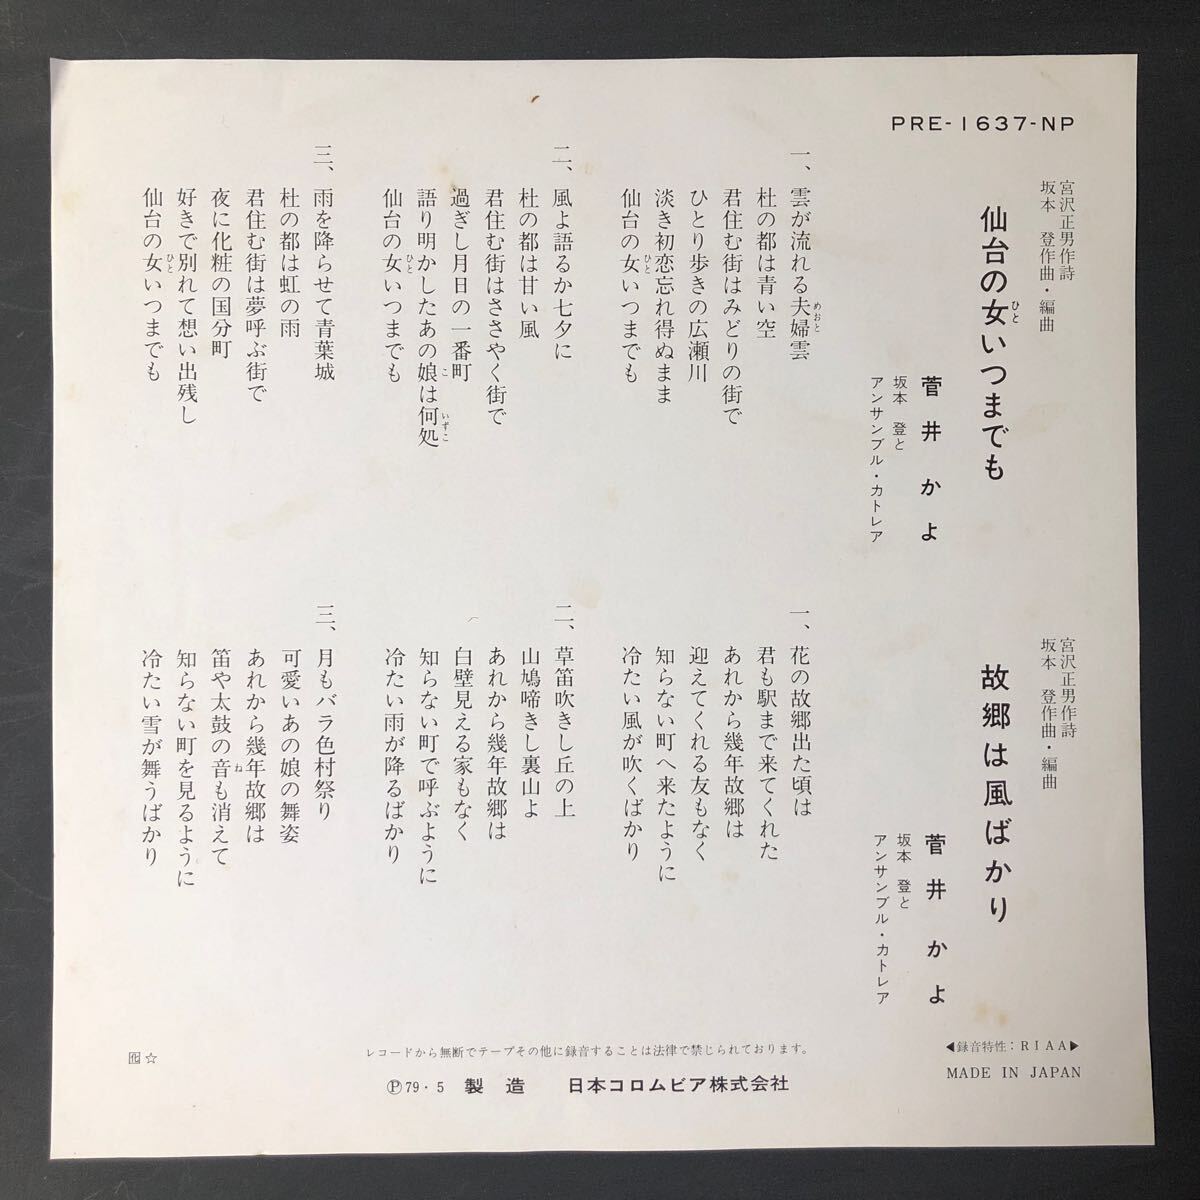 PRE-1637-NP
宮沢正男作詩
坂本 登作曲・編曲
仙台の女いつまでも
ひと
菅井かよ
坂本 登と
アンサンブル・カトレア
一、雲が流れる夫婦雲
めおと
杜の都は青い空
君住む街はみどりの街で
ひとり歩きの広瀬川
淡き初恋忘れ得ぬまま
仙台の女いつまでも
ひと
二、風よ語るか七夕に
杜の都は甘い風
君住む街はささやく街で
過ぎし月日の一番町
語り明かしたあの娘は何処
こ いずこ
仙台の女いつまでも
ひと
三、雨を降らせて青葉城
杜の都は虹の雨
君住む街は夢呼ぶ街で
夜に化粧の国分町
好きで別れて想い出残し
仙台の女いつまでも
ひと
宮沢正男作詩
坂本 登作曲・編曲
故郷は風ばかり
菅井かよ
坂本 登と
アンサンブル・カトレア
一、花の故郷出た頃は
君も駅まで来てくれた
あれから幾年故郷は
迎えてくれる友もなく
知らない町へ来たように
冷たい風が吹くばかり
二、草笛吹きし丘の上
山鳩啼きし裏山よ
あれから幾年故郷は
白壁見える家もなく
知らない町で呼ぶように
冷たい雨が降るばかり
三、月もバラ色村祭り
可愛いあの娘の舞姿
あれから幾年故郷は
笛や太鼓の音も消えて
ね
知らない町を見るように
冷たい雪が舞うばかり
◀録音特性：RIAA▶
MADE IN JAPAN
レコードから無断でテープその他に録音することは法律で禁じられております。
Ⓟ79・5 製造 日本コロムビア株式会社
☆